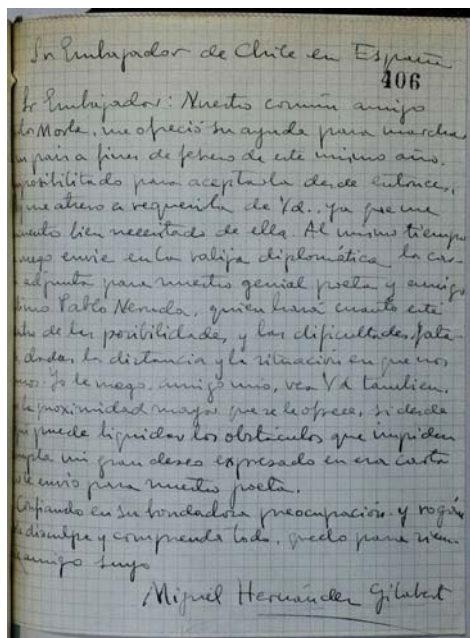 Sr Embajador de Chile en España
406
Sr Embajador: Nuestro común amigo
los Morla, me ofreció su ayuda para marchar
país a fines de febrero de este mismo año.
posibilitado para aceptarla desde entonces,
me atrevo a requerirla de Vd., ya que me
cuento bien necesitado de ella. Al mismo tiempo
ruego envíe en la valija diplomática la car-
adjunta para nuestro genial poeta y amigo
timo Pablo Neruda, quien hará cuanto esté
de las posibilidades, y las dificultades, fata-
dadas la distancia y la situación en que nos
mos. Yo le ruego, amigo mio, vea Vd tambien.
la proximidad mayor que se le ofrece, si desde
puede liquidar los obstáculos que impiden
mi gran deseo expresado en esa carta
le envío para nuestro poeta.
Confiando en su bondadosa preocupación y rogán
disculpe y comprenda todo, quedo para siem-
amigo suyo
Miguel Hernández Gilabert